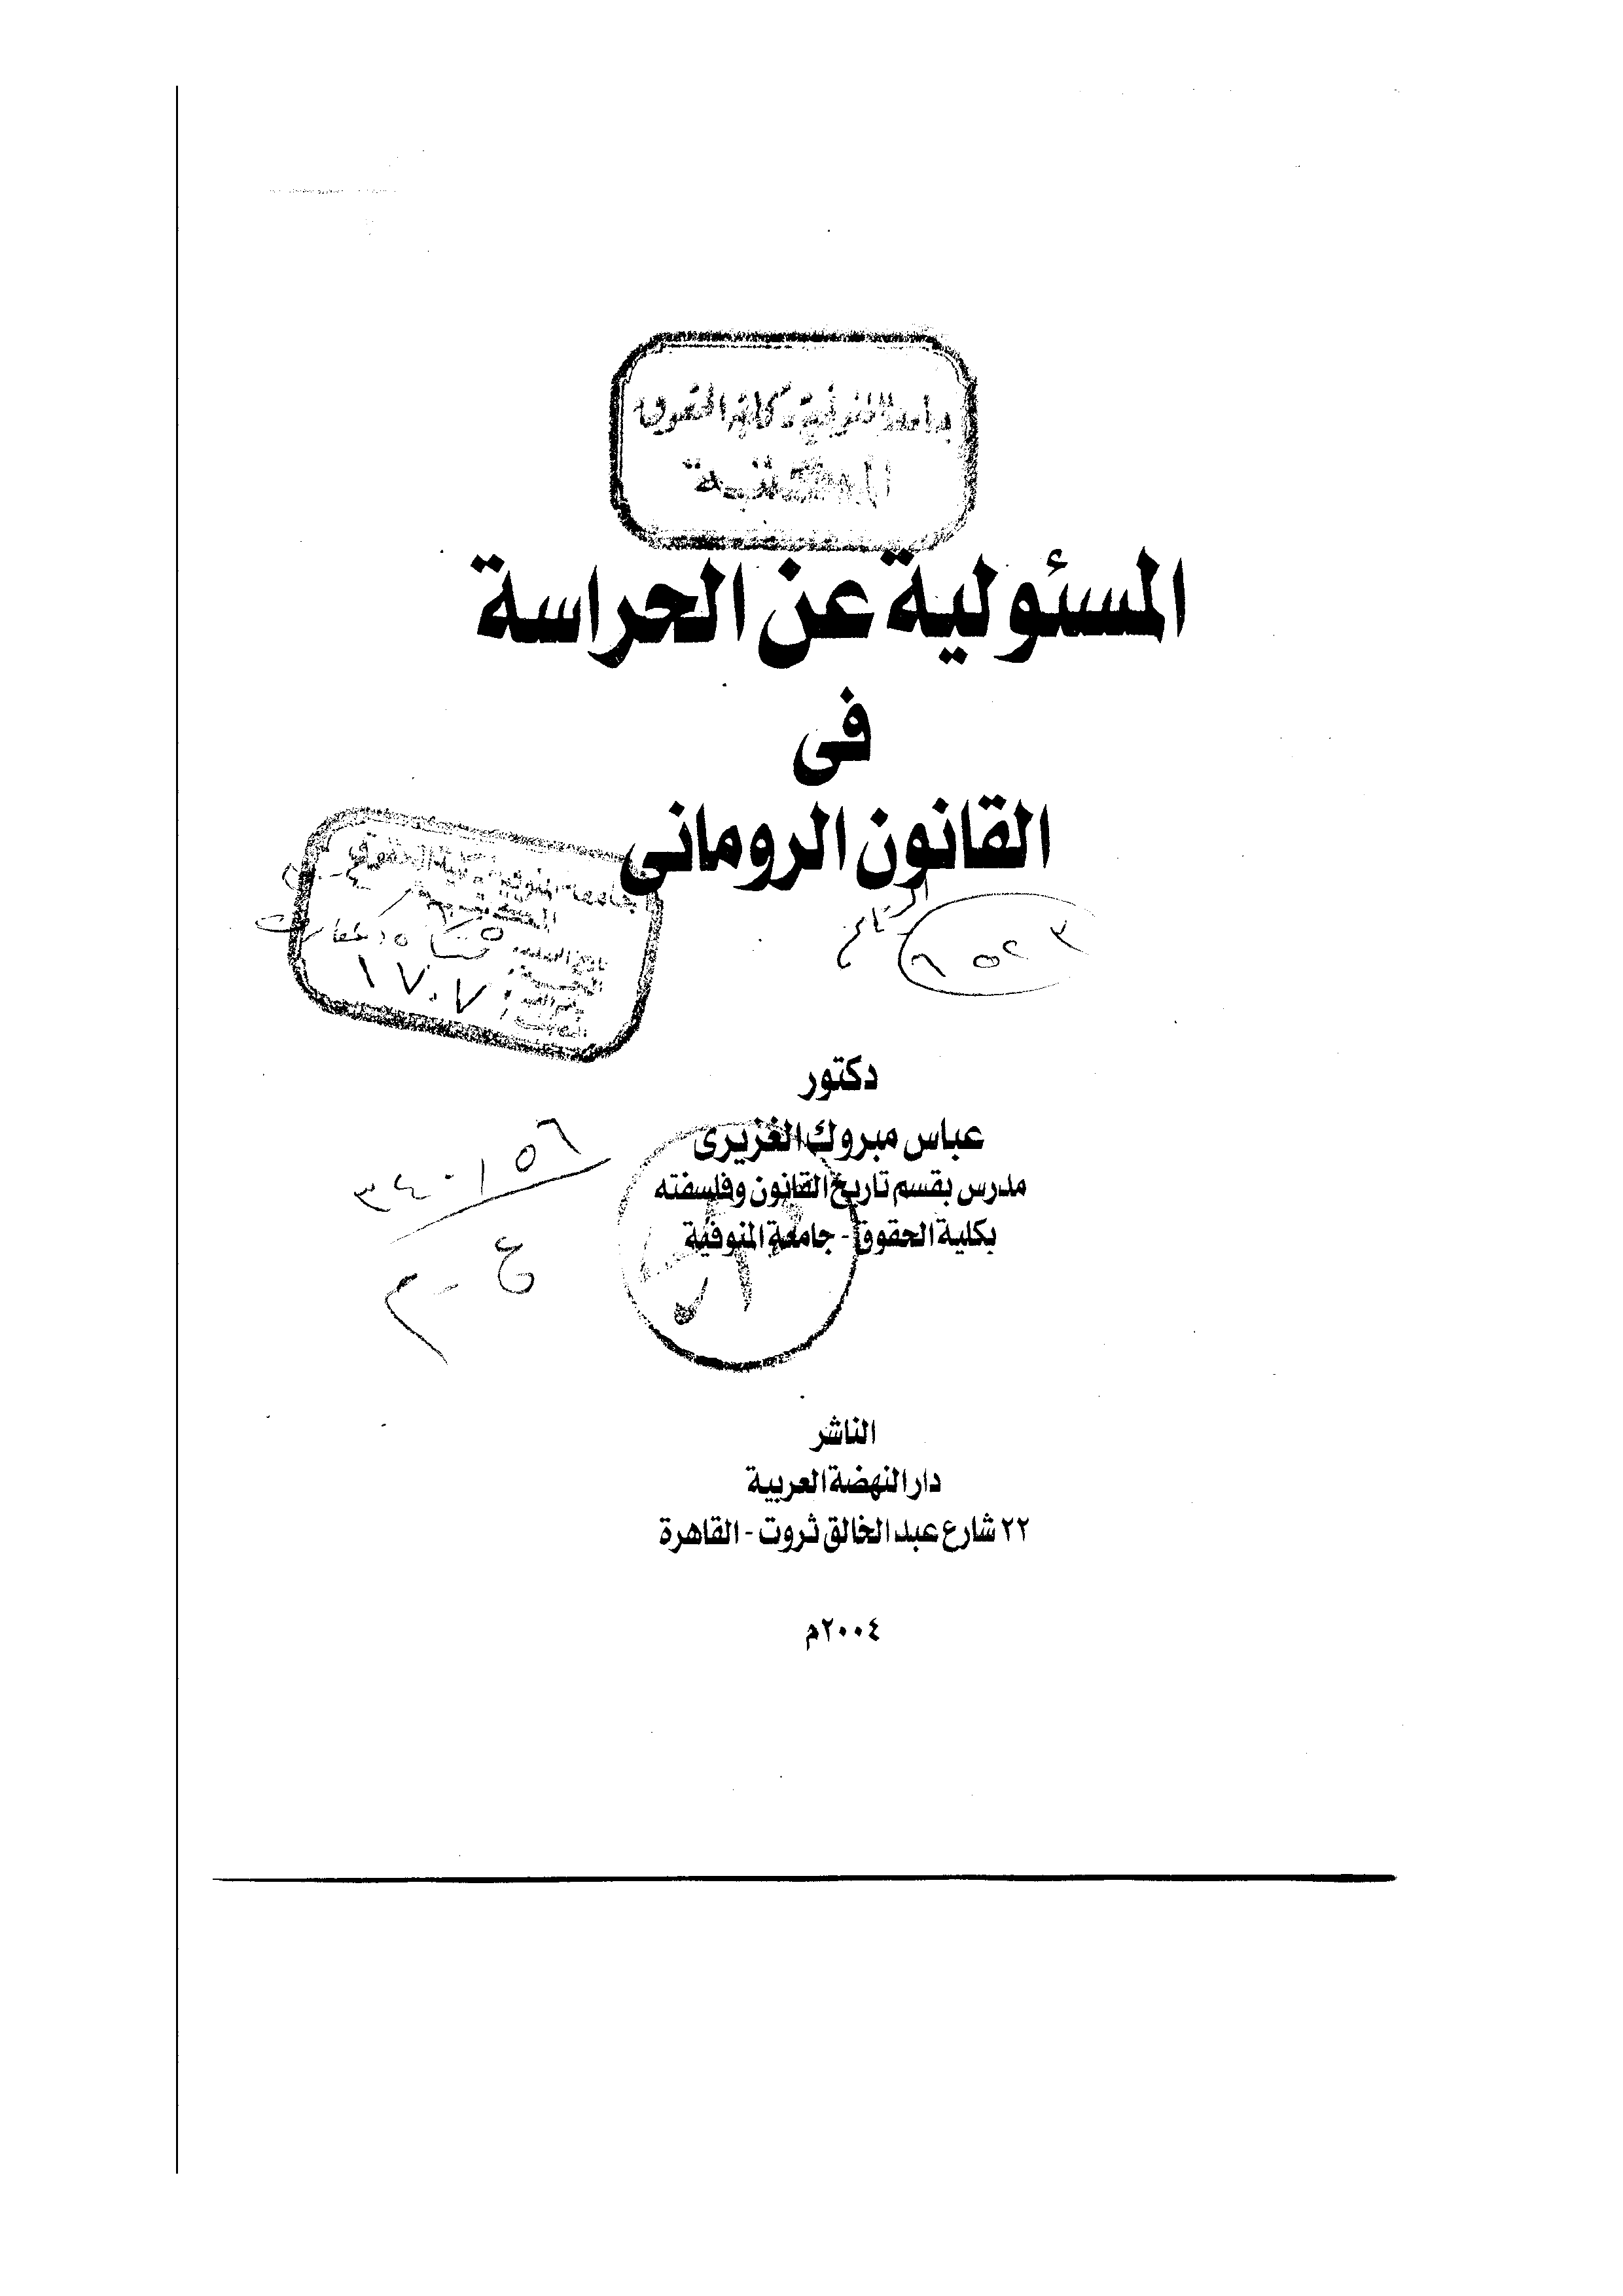 جامعة المنوفية - كلية الحقوق
المكتبة
المسئولية عن الحراسة
فى
القانون الرومانى
جامعة المنوفية - كلية الحقوق
المكتبة
١٧٠٧
دكتور
عباس مبروك الغزيرى
مدرس بقسم تاريخ القانون وفلسفته
بكلية الحقوق - جامعة المنوفية
٣٤٠١٥٦
ع - م
الناشر
دار النهضة العربية
٢٢ شارع عبد الخالق ثروت - القاهرة
٢٠٠٤م